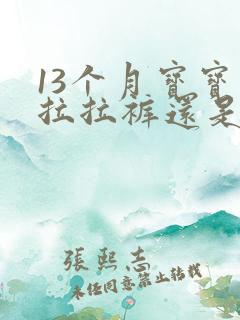 13个月寶寶
拉拉褲還是
張熙志
未经同意禁止转载